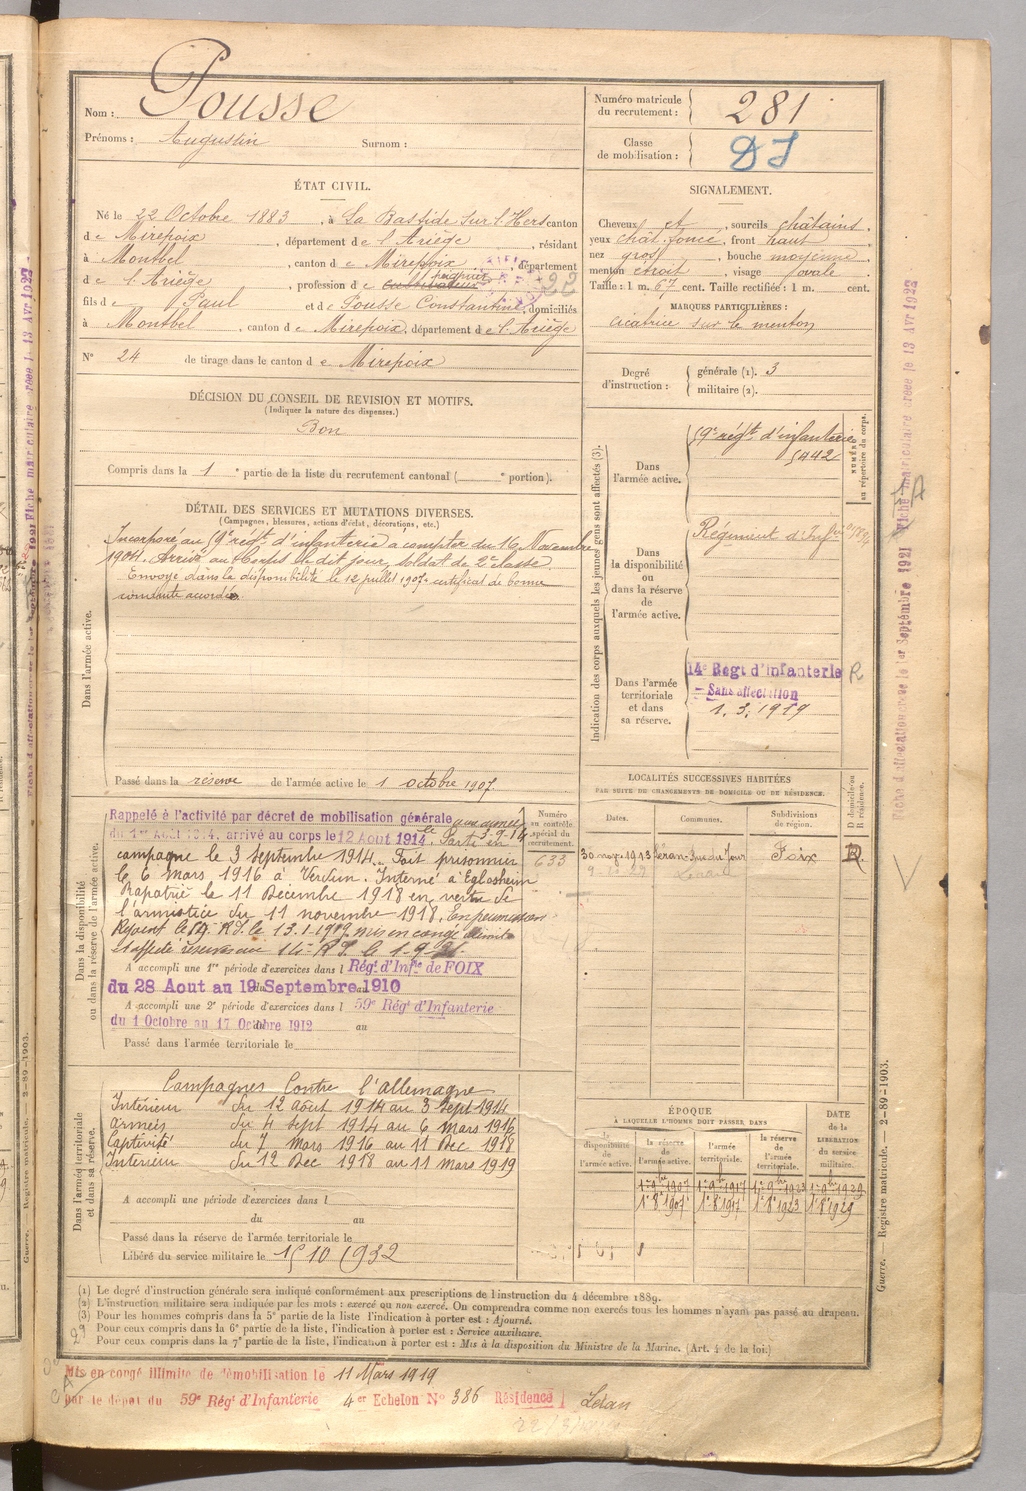 Nom : Pousse
Prénoms : Augustin Surnom :
Numéro matricule du recrutement : 281
Classe de mobilisation :
ÉTAT CIVIL.
Né le 22 Octobre 1883, à La Bastide sur l'Hers canton
de Mirepoix, département de l'Ariège, résidant
à Montbel, canton de Mirepoix, département
de l'Ariège, profession de cultivateur
fils de Paul et de Pousse Constantine, domiciliés
à Montbel, canton de Mirepoix, département de l'Ariège
N° 24 de tirage dans le canton de Mirepoix
SIGNALEMENT.
Cheveux et, sourcils châtains,
yeux chât. foncé, front haut,
nez gros, bouche moyenne,
menton étroit, visage ovale
Taille : 1 m. 67 cent. Taille rectifiée : 1 m. cent.
MARQUES PARTICULIÈRES :
cicatrice sur le menton
Degré d'instruction : générale (1). 3
militaire (2).
DÉCISION DU CONSEIL DE REVISION ET MOTIFS.
(Indiquer la nature des dispenses.)
Bon
Compris dans la 1e partie de la liste du recrutement cantonal ( e portion).
DÉTAIL DES SERVICES ET MUTATIONS DIVERSES.
(Campagnes, blessures, actions d'éclat, décorations, etc.)
Dans l'armée active.
Incorporé au 59e régt d'infanterie a compter du 16 Novembre
1904. Arrivé au Corps le dit jour, soldat de 2e classe.
Envoyé dans la disponibilité le 12 juillet 1907. certificat de bonne
conduite accordé.
Passé dans la réserve de l'armée active le 1 octobre 1907.
Indication des corps auxquels les jeunes gens sont affectés (3).
Dans l'armée active.
59e régt d'infanterie
5442
NUMÉRO au répertoire du corps.
Dans la disponibilité ou dans la réserve de l'armée active.
Régiment d'Infie
Dans l'armée territoriale et dans sa réserve.
14e Régt d'Infanterie R
Sans affectation
1.3.1919
LOCALITÉS SUCCESSIVES HABITÉES
PAR SUITE DE CHANGEMENTS DE DOMICILE OU DE RÉSIDENCE.
Dates. Communes. Subdivisions de région. D domicile ou R résidence.
30 nov. 1913 Léran Foix R.
Dans la disponibilité ou dans la réserve de l'armée active.
Numéro au contrôle spécial du recrutement.
633
Rappelé à l'activité par décret de mobilisation générale
du 1er Août 1914, arrivé au corps le 12 Aout 1914. Parti en
campagne le 3 Septembre 1914. Fait prisonnier
le 6 mars 1916 à Verdun. Interné à Eglosheim
Rapatrié le 11 Décembre 1918 en vertu de
l'armistice du 11 novembre 1918.
A accompli une 1re période d'exercices dans l Régt d'Infie de FOIX
du 28 Aout au 19 Septembre 1910
A accompli une 2e période d'exercices dans l 59e Régt d'Infanterie
du 1 Octobre au 17 Octobre 1912 au
Passé dans l'armée territoriale le
Dans l'armée territoriale et dans sa réserve.
Campagnes Contre l'allemagne
Intérieur du 12 aout 1914 au 3 Sept 1914
armées du 4 sept 1914 au 6 mars 1916
Captivité du 7 mars 1916 au 11 Dec. 1918
Intérieur du 12 Dec 1918 au 11 mars 1919
A accompli une période d'exercices dans l
du au
Passé dans la réserve de l'armée territoriale le
Libéré du service militaire le 15 10 1932
ÉPOQUE
À LAQUELLE L'HOMME DOIT PASSER, DANS
la disponibilité de l'armée active. la réserve de l'armée active. l'armée territoriale. la réserve de l'armée territoriale. DATE de la LIBÉRATION du service militaire.
1er 8bre 1907 1er 8bre 1917 1er 8bre 1923 1er 8bre 1929
(1) Le degré d'instruction générale sera indiqué conformément aux prescriptions de l'instruction du 4 décembre 1889.
(2) L'instruction militaire sera indiquée par les mots : exercé ou non exercé. On comprendra comme non exercés tous les hommes n'ayant pas passé au drapeau.
(3) Pour les hommes compris dans la 5e partie de la liste l'indication à porter est : Ajourné.
Pour ceux compris dans la 6e partie de la liste, l'indication à porter est : Service auxiliaire.
Pour ceux compris dans la 7e partie de la liste, l'indication à porter est : Mis à la disposition du Ministre de la Marine. (Art. 4 de la loi.)
Mis en congé illimité de démobilisation le 11 Mars 1919
par le dépôt du 59e Régt d'Infanterie 4er Echelon N° 386 Résidence Léran
Guerre. — Registre matricule. — 2-89-1903.
Fiche d'affectation créée le 1er Septembre 1921 Fiche matriculaire créée le 13 Avr 1923